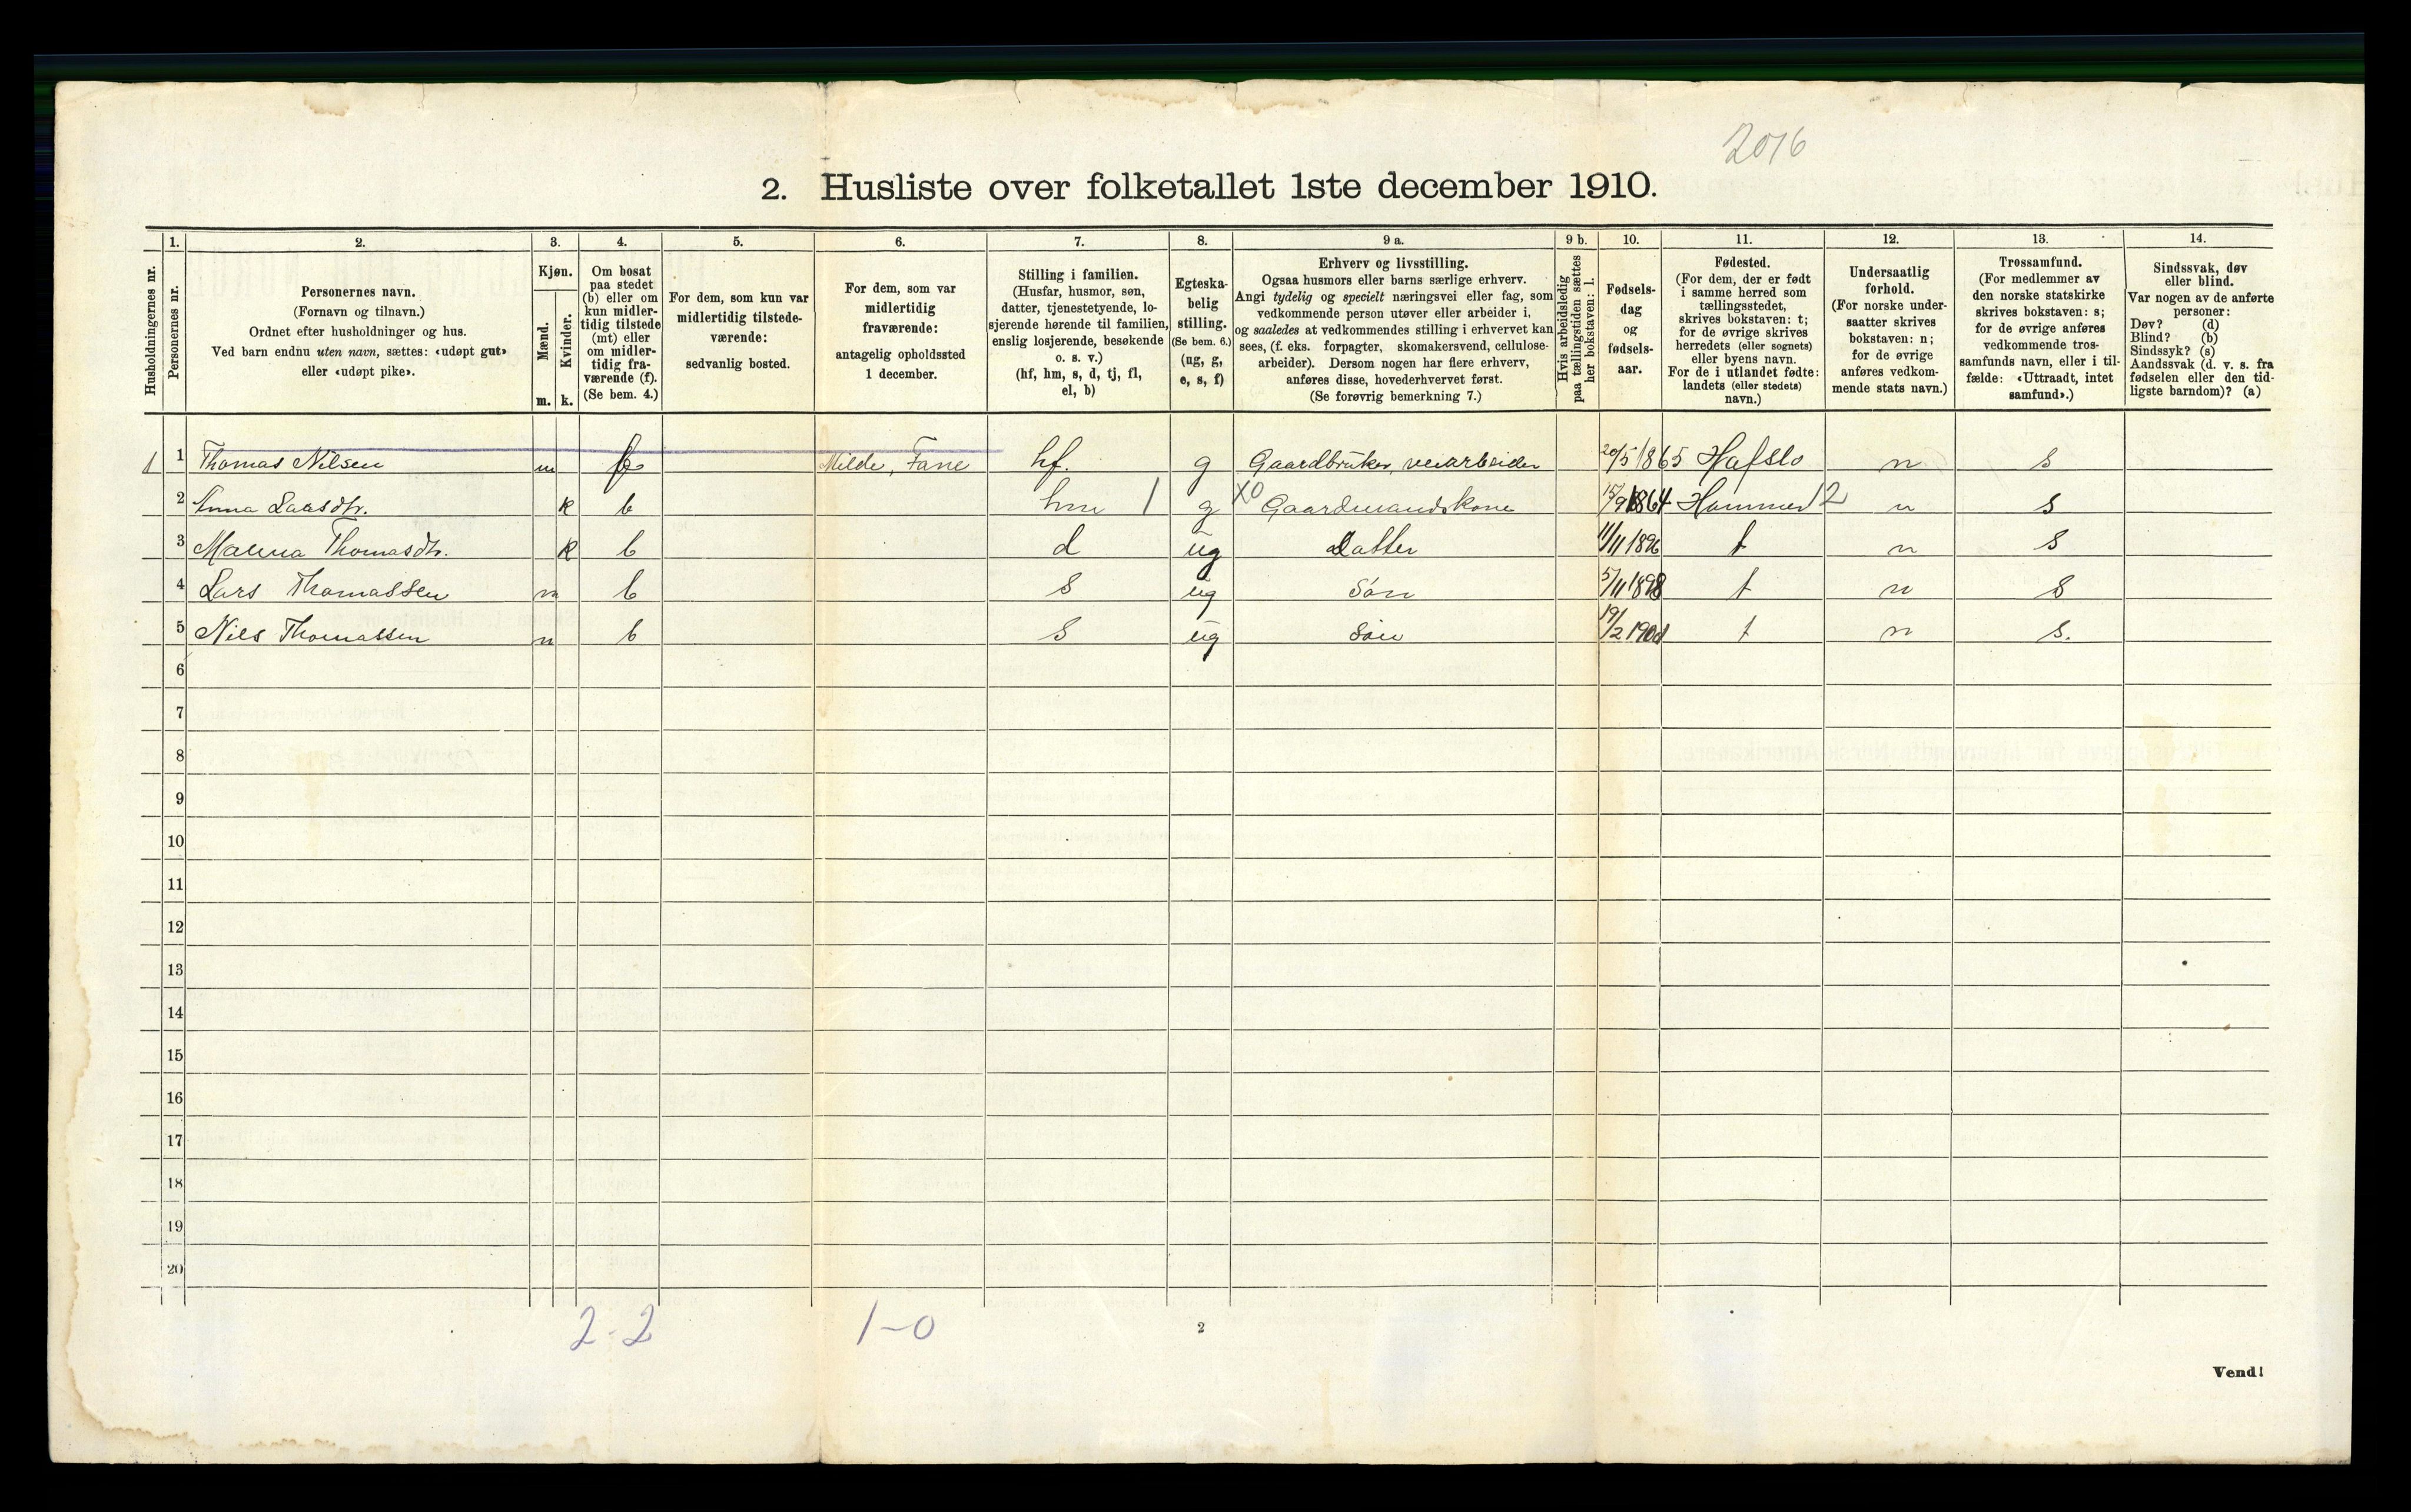 2016
2. Husliste over folketallet 1ste december 1910.
Husholdningernes nr.
1.
Personernes nr.
2.
Personernes navn.
(Fornavn og tilnavn.)
Ordnet efter husholdninger og hus.
Ved barn endnu uten navn, sættes: «udøpt gut»
eller «udøpt pike».
3.
Kjøn.
Mænd.
Kvinder.
m. k.
4.
Om bosat
paa stedet
(b) eller om
kun midler-
tidig tilstede
(mt) eller
om midler-
tidig fra-
værende (f).
(Se bem. 4.)
5.
For dem, som kun var
midlertidig tilstede-
værende:
sedvanlig bosted.
6.
For dem, som var
midlertidig
fraværende:
antagelig opholdssted
1 december.
7.
Stilling i familien.
(Husfar, husmor, søn,
datter, tjenestetyende, lo-
sjerende hørende til familien,
enslig losjerende, besøkende
o. s. v.)
(hf, hm, s, d, tj, fl,
el, b)
8.
Egteska-
belig
stilling.
(Se bem. 6.)
(ug, g,
e, s, f)
9 a.
Erhverv og livsstilling.
Ogsaa husmors eller barns særlige erhverv.
Angi tydelig og specielt næringsvei eller fag, som
vedkommende person utøver eller arbeider i,
og saaledes at vedkommendes stilling i erhvervet kan
sees, (f. eks. forpagter, skomakersvend, cellulose-
arbeider). Dersom nogen har flere erhverv,
anføres disse, hovederhvervet først.
(Se forøvrig bemerkning 7.)
9 b.
Hvis arbeidsledig
paa tællingstiden sættes
her bokstaven: l.
10.
Fødsels-
dag
og
fødsels-
aar.
11.
Fødested.
(For dem, der er født
i samme herred som
tællingsstedet,
skrives bokstaven: t;
for de øvrige skrives
herredets (eller sognets)
eller byens navn.
For de i utlandet fødte:
landets (eller stedets)
navn.)
12.
Undersaatlig
forhold.
(For norske under-
saatter skrives
bokstaven: n;
for de øvrige
anføres vedkom-
mende stats navn.)
13.
Trossamfund.
(For medlemmer av
den norske statskirke
skrives bokstaven: s;
for de øvrige anføres
vedkommende tros-
samfunds navn, eller i til-
fælde: «Uttraadt, intet
samfund».)
14.
Sindssvak, døv
eller blind.
Var nogen av de anførte
personer:
Døv? (d)
Blind? (b)
Sindssyk? (s)
Aandssvak (d. v. s. fra
fødselen eller den tid-
ligste barndom)? (a)
1 1 Thomas Nilsen m f Milde, Fane hf. g Gaardbruker, veiarbeider 20/5 1865 Hafslo n s
2 Anna Larsdtr. k b hm 1 g X0 Gaardmandskone 15/9 1864 Hammer 12 n s
3 Thomasdtr. k b d ug Datter 11/11 1896 t n s
4 Lars Thomassen m b s ug Søn 5/11 1898 t n s
5 Nils Thomassen m b s ug Søn 19/2 t n s.
6
7
8
9
10
11
12
13
14
15
16
17
18
19
20
2-2 1-0
2
Vend!